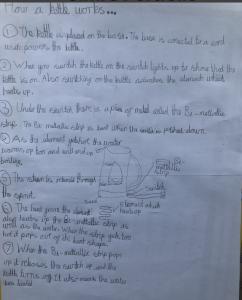 How a kettle works...
① The kettle is placed on the base. The base is connected to a cord
which powers the kettle.
② When you switch the kettle on the switch lights up to show that the
kettle is on. Also switching on the kettle activates the element which
heats up.
③ Under the switch there is a piece of metal called the Bi-metallic
strip. The Bi-metallic strip is bent when the switch is pushed down.
④ As the element gets hot the water
warms up too and will end up
boiling.
⑤ The steam is released through
the spout.
⑥ The heat from the element
also heats up the Bi-metallic strip as
well as the water. When the strip gets too
hot it pops out of its bent shape.
⑦ When the Bi-metallic strip pops
up it releases the switch up and the
kettle turns off. It also means the water
has boiled
Bi-
metallic
strip
Switch
Element which
heats up